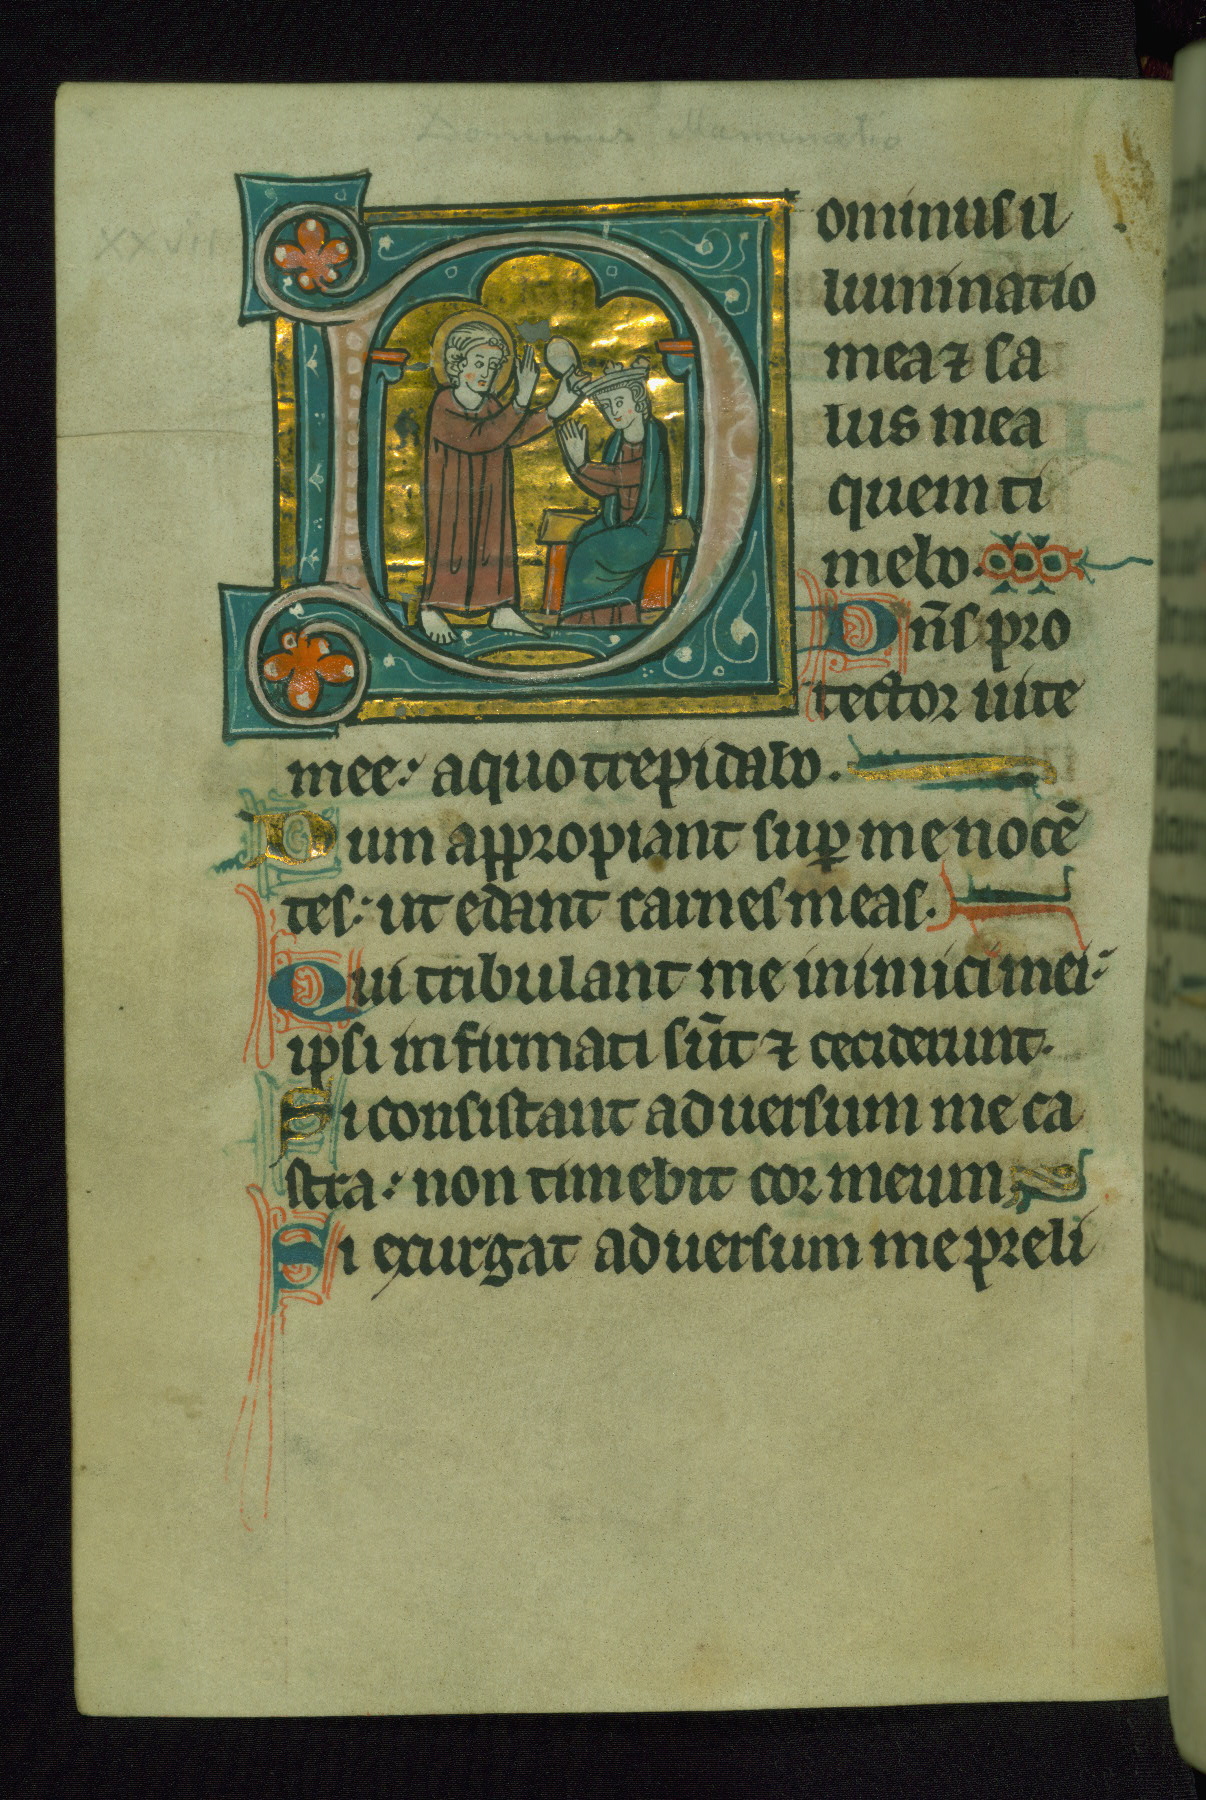 Dominus Illuminatio
XXVII
Dominus il
luminatio
mea ⁊ sa
lus mea
quem ti
mebo.
Dn̄s pro
tector uite
mee: a quo trepidabo.
Dum appropiant sup̲ me nocē
tes: ut edant carnes meas.
Qui tribulant me inimici mei:
ipsi infirmati sūt ⁊ ceciderunt.
Si consistant aduersum me ca
stra: non timebit cor meum;
Si exurgat aduersum me preli